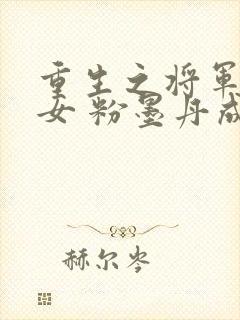 重生之将军
女 粉墨丹成
赫尔岑